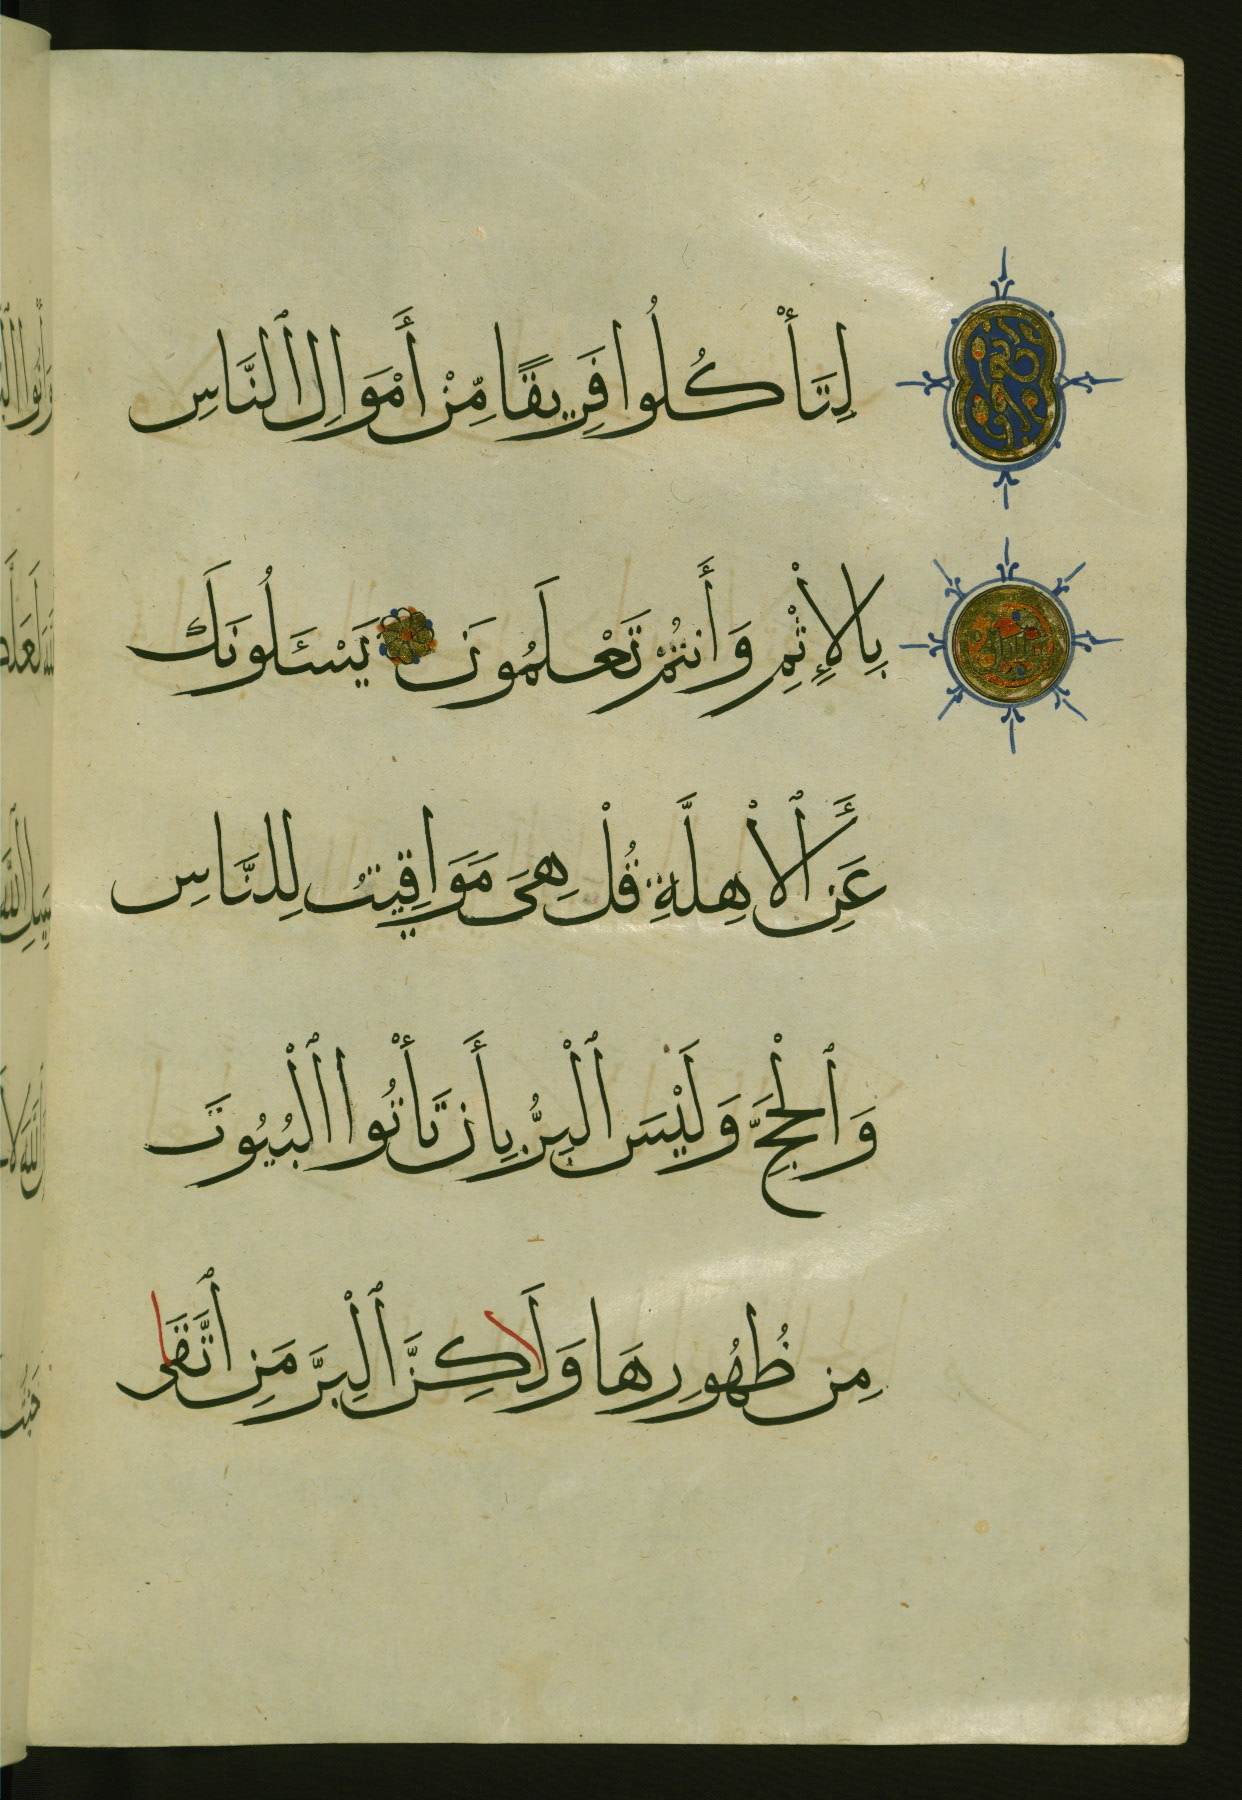 لِتَأْكُلُوا فَرِيقًا مِّنْ أَمْوَالِ ٱلنَّاسِ
بِالْإِثْمِ وَأَنتُمْ تَعْلَمُونَ يَسْـَٔلُونَكَ
عَنِ ٱلْأَهِلَّةِ قُلْ هِىَ مَوَاقِيتُ لِلنَّاسِ
وَٱلْحَجِّ وَلَيْسَ ٱلْبِرُّ بِأَن تَأْتُوا ٱلْبُيُوتَ
مِن ظُهُورِهَا وَلَاكِنَّ ٱلْبِرَّ مَنِ ٱتَّقَى